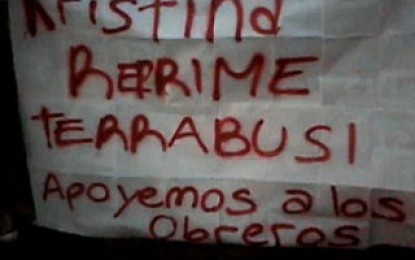 Kristina
REPRIME
TERRABUSI
Apoyemos a los
Obreros